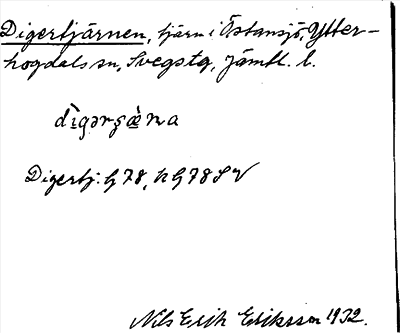 Digertjärnen, tjärn i Östansjö, Ytter-
hogdals sn, Svegs tg, Jämtl. l.
dìgərʂæ̀na
Digertj: G 78, K G78SV
Nils Erik Eriksson 1932.